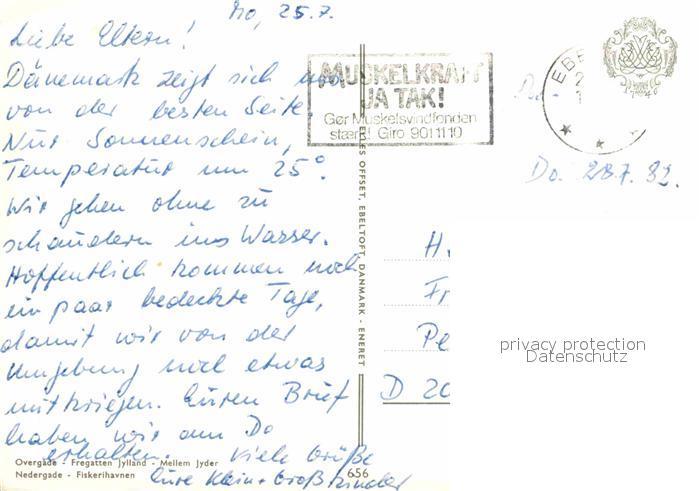 Mo, 25.7.
Liebe Eltern!
Dänemark zeigt sich uns
von der besten Seite.
Nur Sonnenschein,
Temperatur um 25°.
Wir gehen ohne zu
schaudern ins Wasser.
Hoffentlich kommen noch
ein paar bedeckte Tage,
damit wir von der
Umgebung noch etwas
mitkriegen. Euren Brief
haben wir am Do
erhalten. Viele Grüße
Eure Klein + Großkinder
Overgade - Fregatten Jylland - Mellem Jyder
Nedergade - Fiskerihavnen
656
MUSKELKRAFT
JA TAK!
Gør Muskelsvindfonden
stærk! Giro 9011110
EBE
OFFSET, EBELTOFT, DANMARK - ENERET
Do. 28.7. 82.
H.
Fr
Pe
D 20
privacy protection
Datenschutz